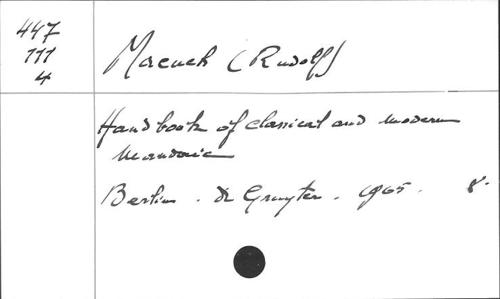 447
111
4
Macuch (Rudolf)
Handbook of classical and modern
Mandaic
Berlin . de Gruyter . 1965 . 8°